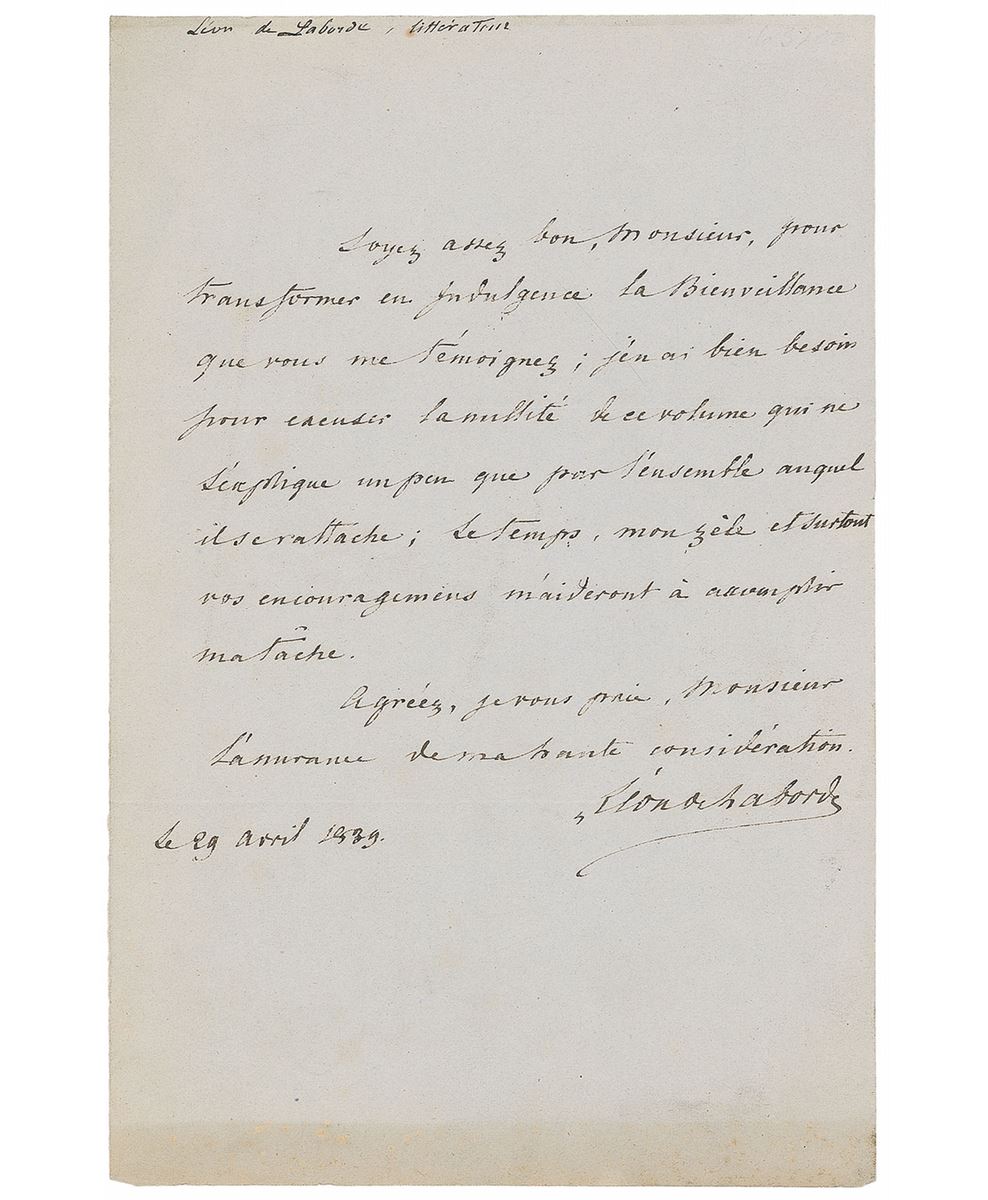 Léon de Laborde, littérateur
Soyez assez bon, Monsieur, pour
transformer en Indulgence la Bienveillance
que vous me témoignez ; j'en ai bien besoin
pour excuser la nullité de ce volume qui ne
s'explique un peu que par l'ensemble auquel
il se rattache ; le temps, mon zèle et surtout
vos encouragemens m'aideront à accomplir
ma tâche.
Agréez, je vous prie, Monsieur
l'assurance de ma haute considération.
Léon de Laborde
le 29 avril 1839.